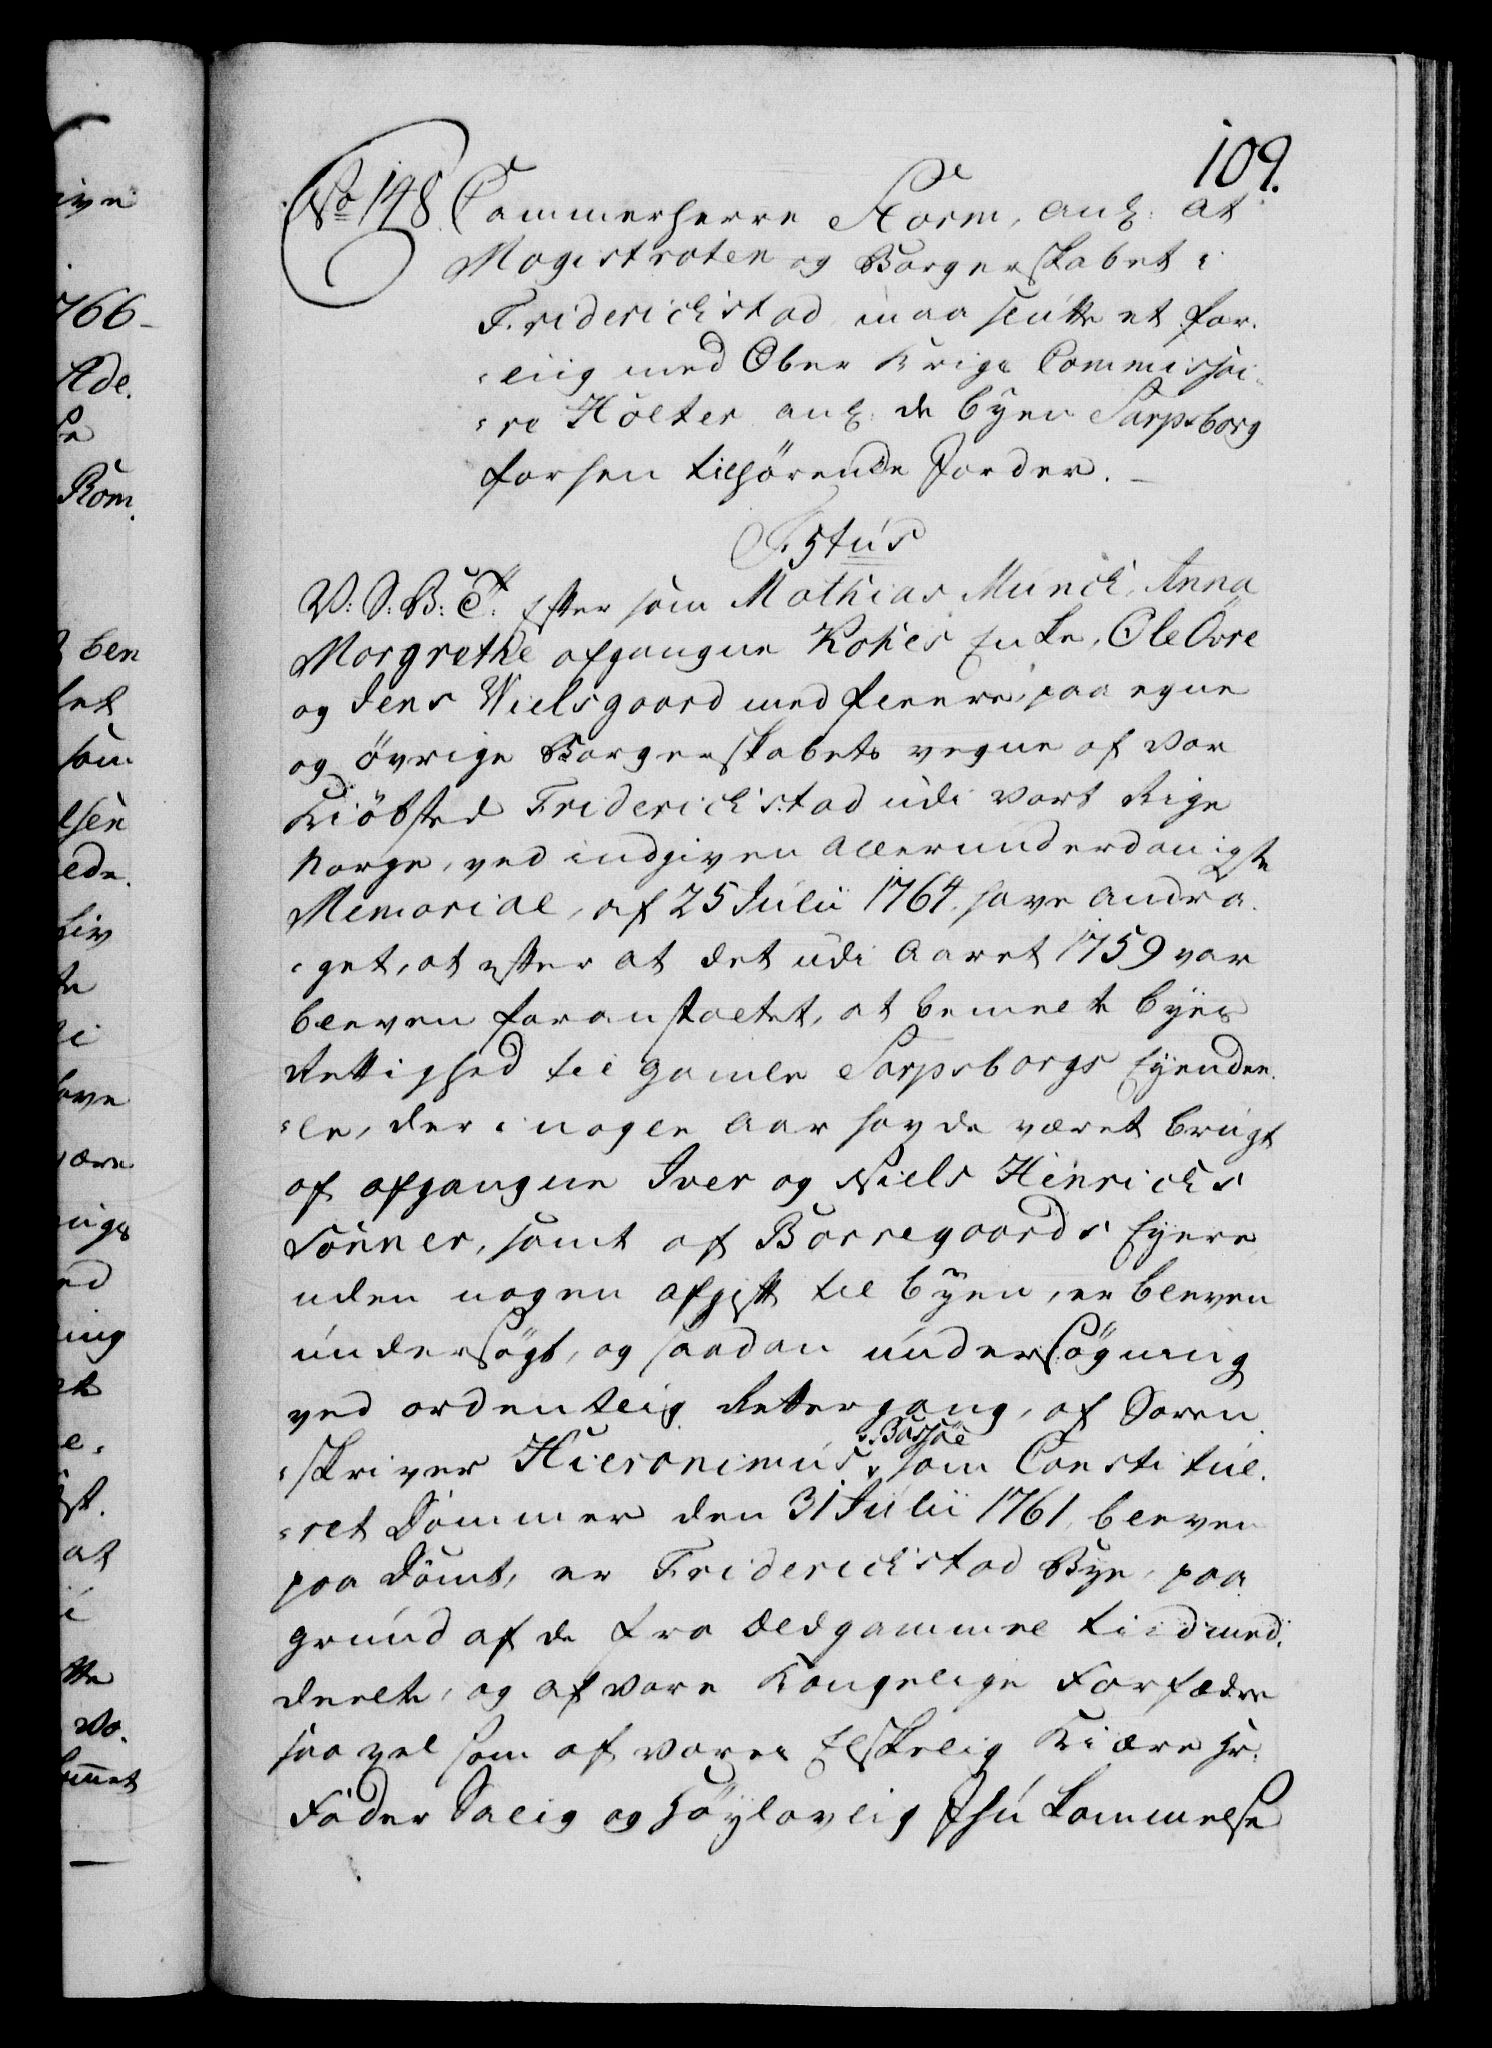 109.
No 148. Cammerherre Storm, ang: at
Magistraten og Borgerskabet i
Friderichstad maa slutte et for-
=liig med Ober Krigs Commissai-
=re Holter ang: de byen Sarpsborg
forhen tilhörende Jorder.
V: S: B: T: Efter som Mathias Munch, Anna
Margrethe afgangne Kohes Enke, Ole Övre
og Jens Nielsgaard med fleere, paa egne
og övrige Borgerskabets vegne af vor
Kiöbsted Friderichstad udi vort Rige
Norge, ved indgiven allerunderdanigste
Memorial, af 25 Julii 1764. have andra-
=get, at efter at det udi Aaret 1759 var
bleven foranstaltet, at bemelte byes
Rettighed til gamle Sarpsborgs Eyende-
=le, der i nogle Aar havde været brugt
af afgangne Iver og Niels Hinrichs
Sönner, samt af Borregaards Eyere
uden nogen afgift til byen, er bleven
undersögt, og saadan undersögning
ved ordentlig Rettergang, af Soren
=skriver Hieronimus Bassöe som Constitue-
=ret Dommer den 31 Julii 1761, bleven
paa Dömt, er Friderichstad Bye, paa
grund af de fra Ældgammel tiid med-
deelte, og af vore Kongelige Forfædre
saa vel som af vores Elskelig Kiære Hr:
Fader Salig og Höylovlig Ihukommelse
766-
Ade.
Rom.
ben
let
som
elsen
ede.
Liv
te
ave
være
ed
ing
at
vo-